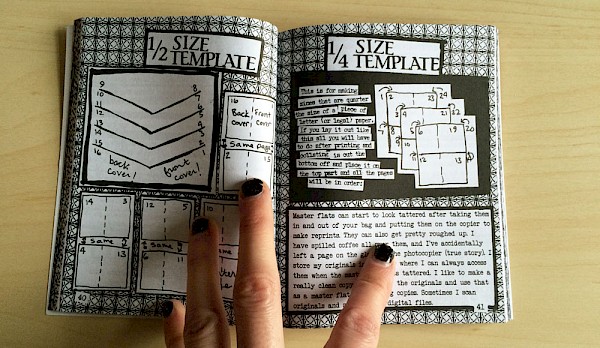 1/2 SIZE
TEMPLATE
9
10
11
12
13
14
15
16
8
7
6
5
4
3
2
1
back
cover!
front
cover!
16
Back
cover!
Front
cover!
same page
2
15
14
3
same
4
13
same
6
11
10
40
1/4 SIZE
TEMPLATE
This is for making
zines that are quarter
the size of a piece of
Letter (or legal) paper.
If you lay it out like
this all you will have
to do after printing and
collating is cut the
bottom off and place it
on the top part and all the pages
will be in order:
1
2
23
24
6
19
20
Master flats can start to look tattered after taking them
in and out of your bag and putting them on the copier to
make reprints. They can also get pretty roughed up. I
have spilled coffee all them, and I've accidentally
left a page on the photocopier (true story). I
store my originals where I can always access
them when the mast tattered. I like to make a
really clean cop the originals and use that
as a master flat copies. Sometimes I scan
originals and digital files.
41